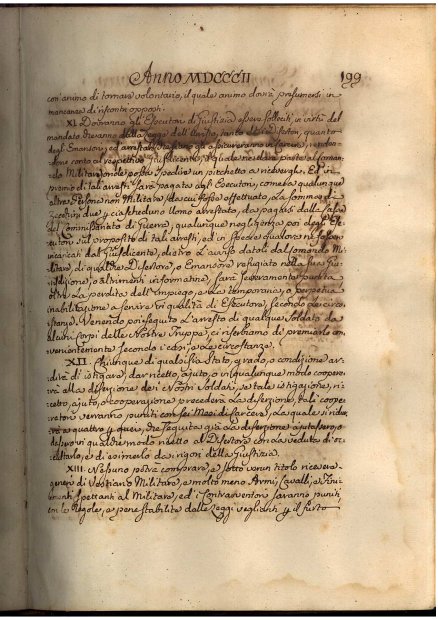 Anno MDCCCII 199
con'animo di tornare volontario, il quale animo dovrà presumersi in
mancanza di riscontri opposti.
XI. Dovranno gli Esecutori di Giustizia essere solleciti in virtù del
mandato, che anno dalla Legge dell'Arresto, tanto dei Disertori, quanto
degli Emansori; ed arrestati che siano gli assicureranno in Carcere, rendendo-
ne conto al respettivo Giusdicente, il quale ne darà parte al Coman-
do Militare, onde possa spedire un picchetto a riceverli. Ed in
premio di tali arresti sarà pagata dagli Esecutori, come da qualunque
altra Persona non Militare, da cui fosse effettuato, la somma di
Zecchini due per ciascheduno Uomo arrestato, da pagarsi dalla Cassa
del Commissariato di Guerra; qualunque negligenza poi degli Ese-
cutori sul proposito di tali arresti, ed in specie qualora ne fossero
incaricati dal Giusdicente, dietro l'avviso datoli dal Comando Mi-
litare, di qualche Disertore, o Emansore refugiato nella sua Giu-
risdizione, o altrimenti informatine, sarà severamente punita
oltre la perdita dell'Impiego, e la temporaria, o perpetua
inabilitazione a servire in qualità di Esecutore, secondo le circo-
stanze. Venendo poi eseguito l'arresto di qualche Soldato da
alcuni corpi delle Nostre Truppe, ci riserbiamo di premiarlo con-
venientemente secondo i casi, e le circostanze.
XII. Chiunque di qualsisia Stato, grado, o condizione ar-
dirà di istigare, dar ricetto, ajuto, o in qualunque modo coopere-
rà alla diserzione dei Nostri Soldati, se tale istigazione, ri-
cetto, ajuto, o cooperazione precederà la diserzione, tali coope-
ratori verranno puniti con sei Mesi di Carcere, la quale si ridur-
rà a quattro per quei, che seguita già la diserzione ajutassero, o
dassero in qualche modo ricetto al Disertore con la veduta di oc-
cultarlo, e di esimerlo dai rigori della Giustizia.
XIII. Nessuno potrà comprare, e sotto verun titolo ricevere
generi di Vestiario Militare, e molto meno Armi, Cavalli, e Fini-
menti spettanti al Militare, ed i Contravventori saranno puniti
con le Regole, e pene stabilite dalle Leggi veglianti per il furto